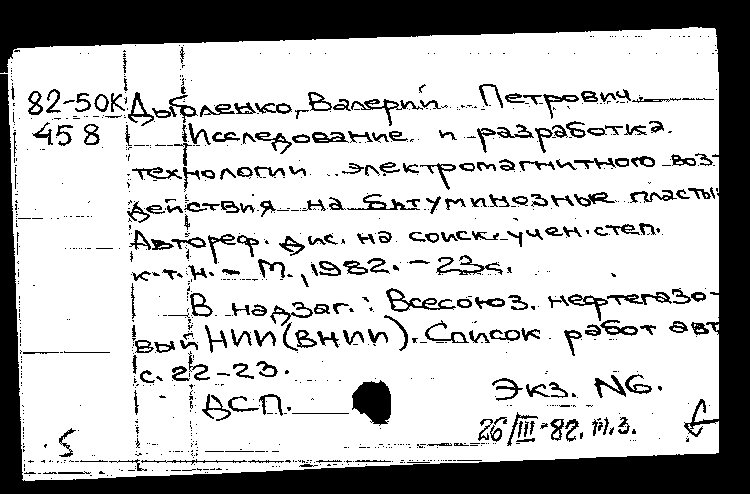 82-50К Дыбленко, Валерий Петрович.
458 Исследование и разработка
технологии электромагнитного воз-
действия на битуминозные пласты.
Автореф. дис. на соиск. учен. степ.
к.т.н. - М., 1982. - 23с.
В надзаг.: Всесоюз. нефтегазо-
вый НИИ (ВНИИ). Список работ авт.
с. 22-23.
ДСП. Экз. N6.
26/III-82. т.з.